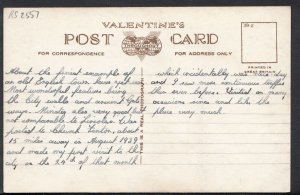 RS 2557
VALENTINE'S
POST CARD
FOR CORRESPONDENCE
FOR ADDRESS ONLY
PRINTED IN
THIS IS A REAL PHOTOGRAPH
About the finest example of
an old English town I have yet seen.
Most wonderful features being
the City walls and ancient gate
ways. Minster also very good but
not comparable to Lincoln. Was
posted to Church Fenton, about
15 miles away in August 1939
and made my first visit to the
city on the 24th of that month
which incidentally was a day
and I saw more continuous traffic
than even before. Visited on many
occasions since and like the
place very much.